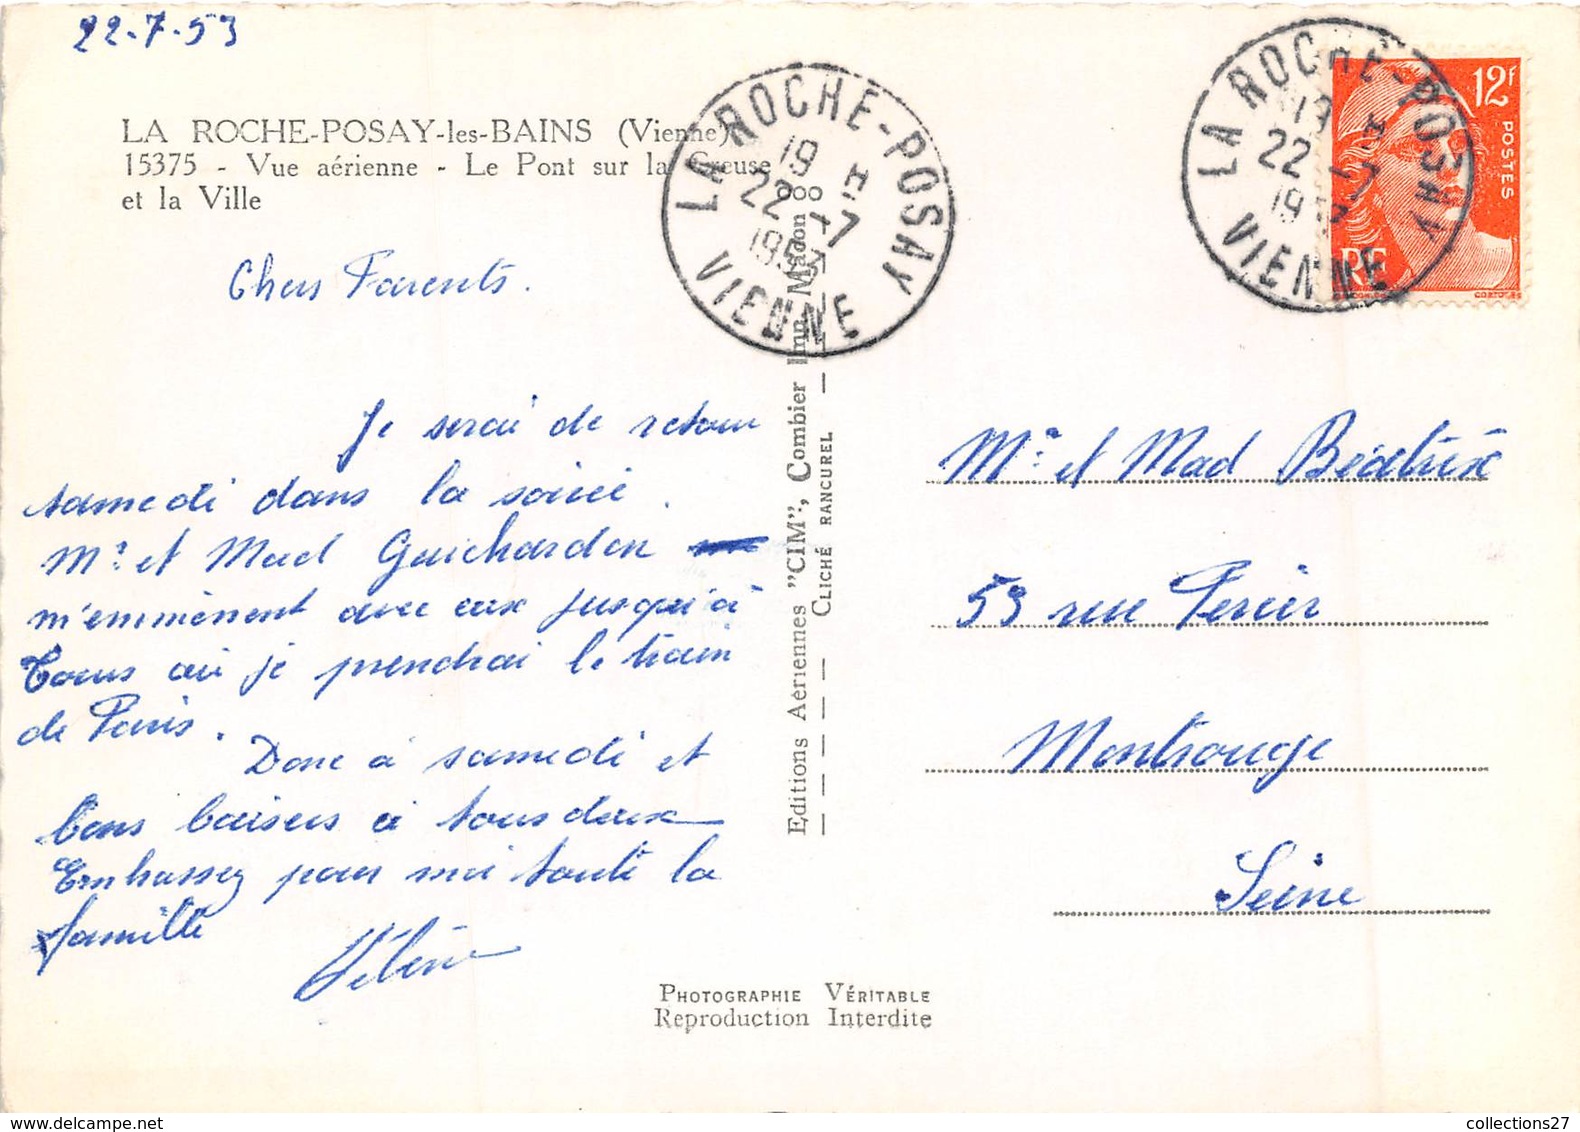 22-7-53
LA ROCHE-POSAY-les-BAINS (Vienne)
15375 - Vue aérienne - Le Pont sur la Creuse
et la Ville
Chers Parents.
Je serai de retour
samedi dans la soirée.
Mr et Mad Guichardon
m'emmènent avec eux jusqu'à
Tours où je prendrai le train
de Paris.
Donc à samedi et
bons baisers à tous deux
Embrassez pour moi toute la
famille
Hélène
LA ROCHE-POSAY
19 H
22 -7
1953
VIENNE
Editions Aériennes "CIM", Combier Imp. Macon
CLICHÉ RANCUREL
LA ROCHE-POSAY
19 H
22 -7
19
VIENNE
12F
POSTES
RF
GANDON
CORTOT
Mr et Mad Béatrix
53 rue Périer
Montrouge
Seine
PHOTOGRAPHIE VÉRITABLE
Reproduction Interdite
collections27